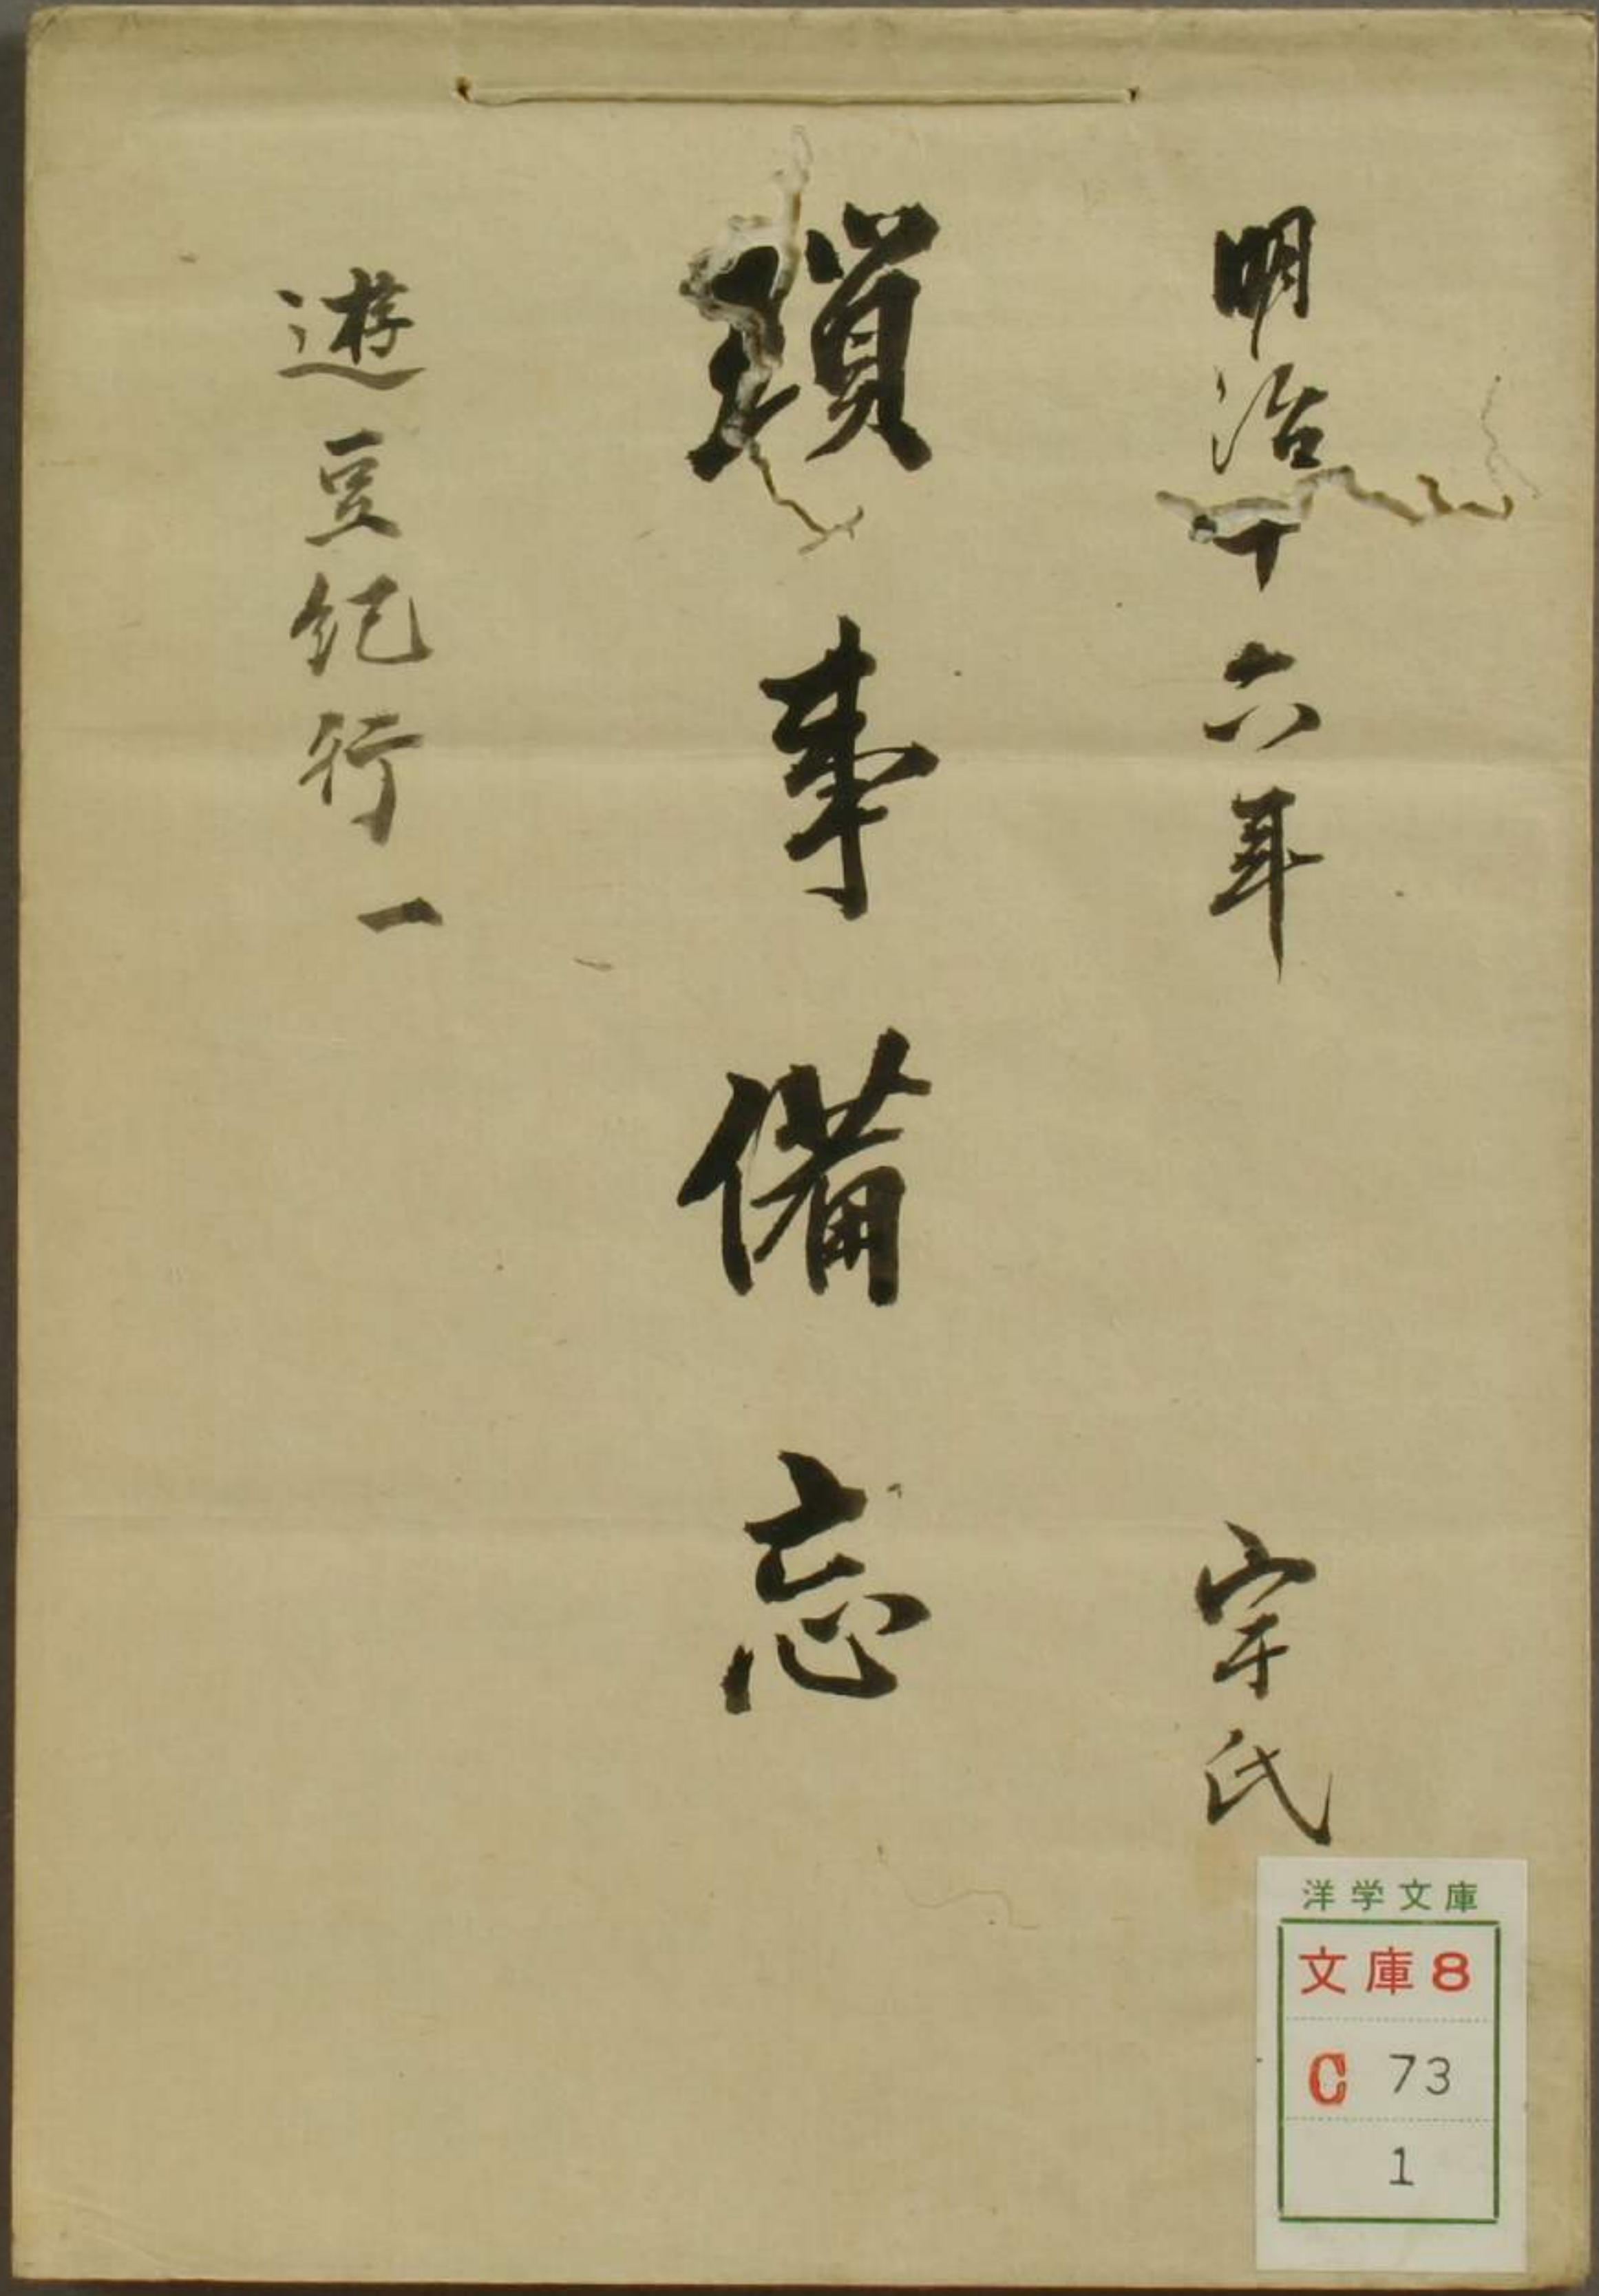 明治十六年
宇氏
瑣事備忘
遊豆紀行一
洋学文庫
文庫8
C 73
1